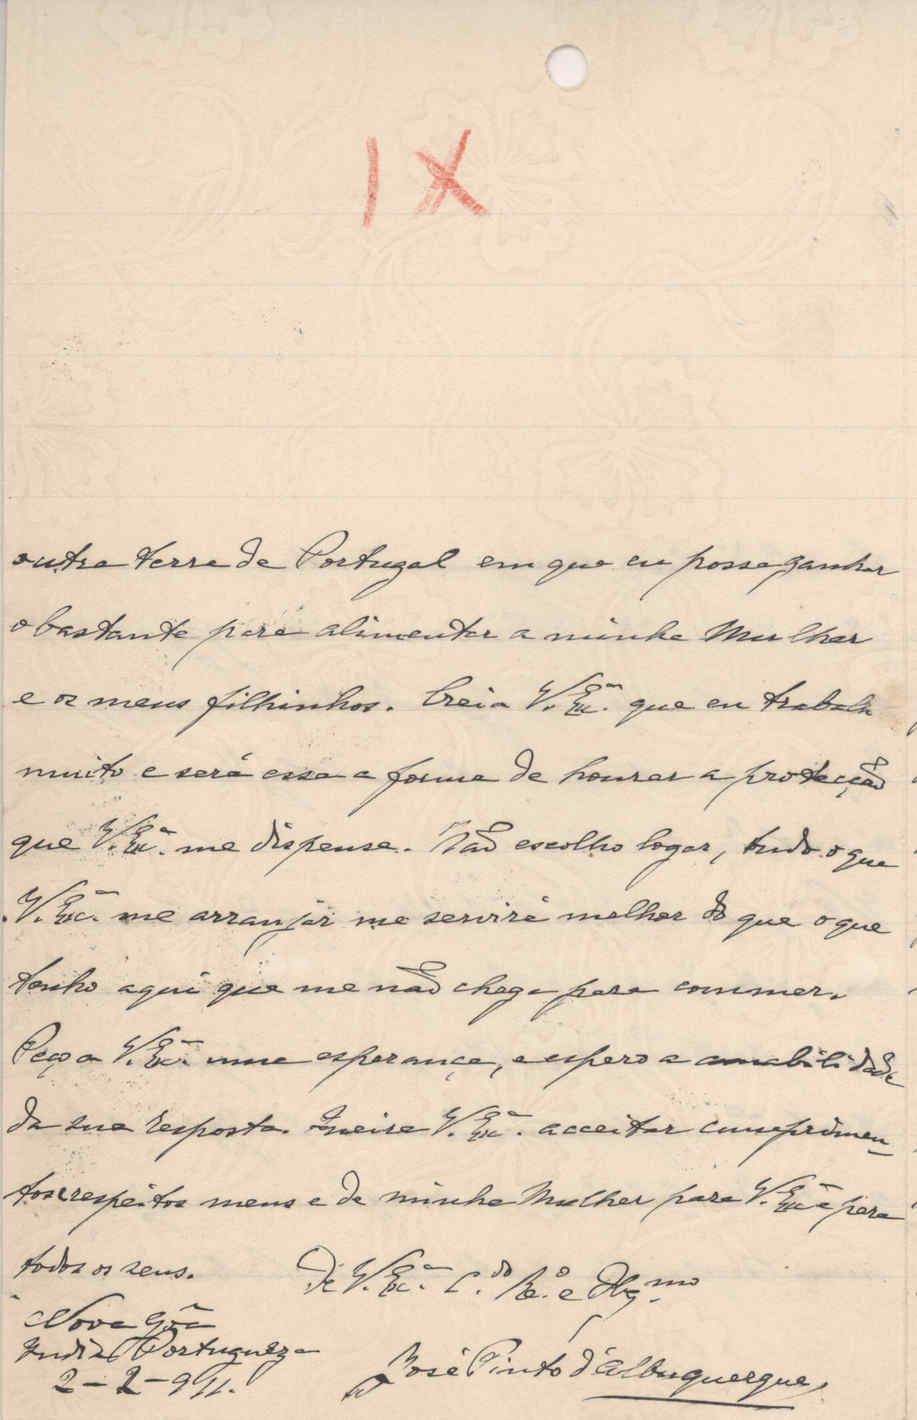 IX
outra terra de Portugal em que eu possa ganhar
o bastante para alimentar a minha Mulher
e os meus filhinhos. Creia V. Exª. que eu trabalho
muito e será essa a forma de honrar a protecção
que V. Exª. me dispense. Não escolho logar, tudo o que
V. Exª. me arranjar me servirá melher do que o que
tenho aqui que me não chega para commer.
Peço a V. Exª. uma esperança, e espero a amabilidade
da sua resposta. Queira V. Exª. acceitar cumprimen-
tos e respeitos meus e de minha Mulher para V. Exª e para
todos os seus.
De V. Exª. C.do Re.º e Obg.mo
Nova Gôa
India Portugueza
2-2-911.
José Pinto d'Albuquerque,